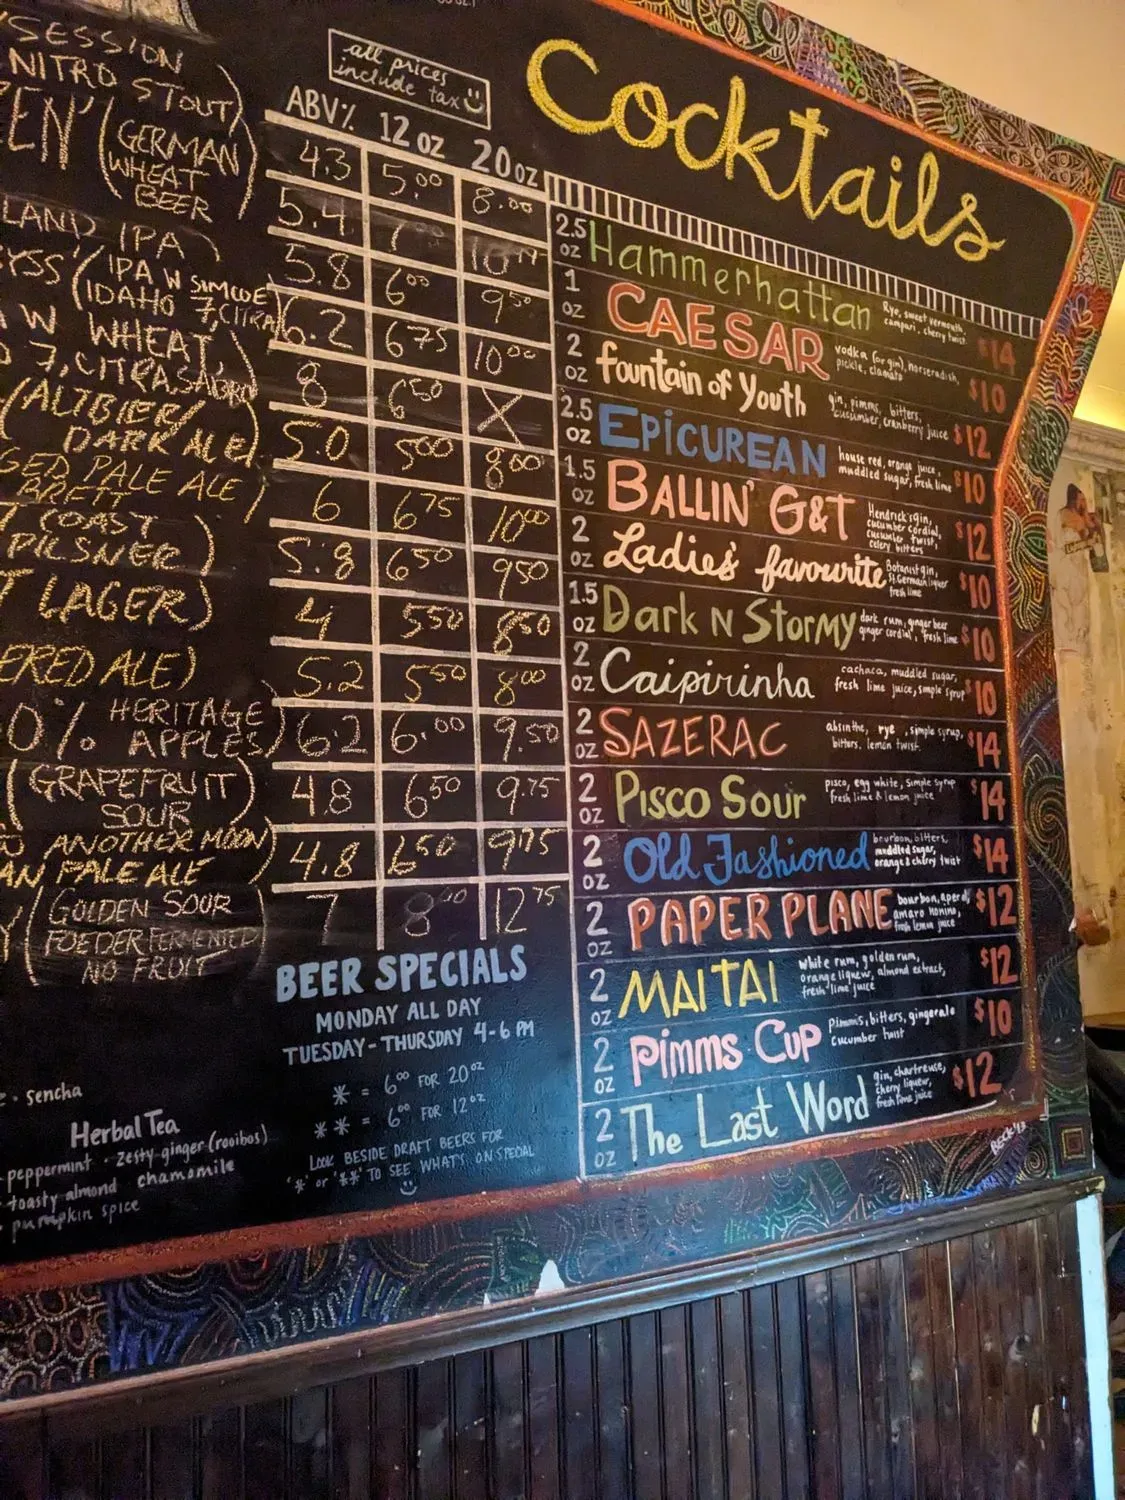 SESSION
NITRO STOUT)
(GERMAN
WHEAT
BEER)
IPA)
(IPA W SIMCOE
IDAHO 7, CITRA)
W WHEAT,
7, CITRA, SABRO)
(ALTBIER/
DARK ALE)
PALE ALE
BRETT)
COAST
PILSNER)
LAGER)
RED ALE)
0% HERITAGE
APPLES)
(GRAPEFRUIT
SOUR
ANOTHER MOON)
PALE ALE)
(GOLDEN SOUR
FOEDER FERMENTED)
NO FRUIT
all prices
include tax
ABV% 12 oz 20 oz
4.3 5.00 8.00
5.4
5.8 6.00 9.50
6.2 6.75 10.00
8 6.50 X
5.0 5.00 8.00
6 6.75 10.00
5.8 6.50 9.50
4 5.50 8.50
5.2 5.50 8.00
6.2 6.00 9.50
4.8 6.50 9.75
4.8 6.50 9.75
7 12.75
BEER SPECIALS
MONDAY ALL DAY
TUESDAY - THURSDAY 4-6 PM
* = 6.00 FOR 20 oz
** = 6.00 FOR 12 oz
LOOK BESIDE DRAFT BEERS FOR
'*' or '**' TO SEE WHAT'S ON SPECIAL
sencha
Herbal Tea
peppermint · zesty ginger (rooibos)
toasty almond chamomile
pumpkin spice
Cocktails
2.5 oz Hammerhattan Rye, sweet vermouth, campari, cherry twist $14
1 oz CAESAR vodka (or gin), horseradish, pickle, clamato $10
2 oz fountain of Youth gin, pimms, bitters, cucumber, cranberry juice $12
2.5 oz EPICUREAN house red, orange juice, muddled sugar, fresh lime $10
1.5 oz BALLIN' G&T Hendrick's gin, cucumber cordial, cucumber twist, celery bitters $12
2 oz Ladies' favourite Botanist gin, St Germain liquer fresh lime $10
1.5 oz Dark N Stormy dark rum, ginger beer ginger cordial, fresh lime $10
2 oz Caipirinha cachaca, muddled sugar, fresh lime juice, simple syrup $10
2 oz SAZERAC absinthe, rye, simple syrup, bitters, lemon twist $14
2 oz Pisco Sour pisco, egg white, simple syrup fresh lime & lemon juice $14
2 oz Old Fashioned bourbon, bitters, muddled sugar, orange & cherry twist $14
2 oz PAPER PLANE bourbon, aperol, amaro nonino, fresh lemon juice $12
2 oz MAI TAI white rum, golden rum, orange liquer, almond extract, fresh lime juice $12
2 oz Pimms Cup pimms, bitters, gingerale cucumber twist $10
2 oz The Last Word gin, chartreuse, cherry liqueur, fresh lime juice $12